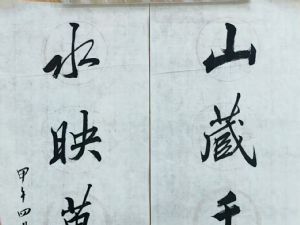 山藏千
水映萬
甲午四月